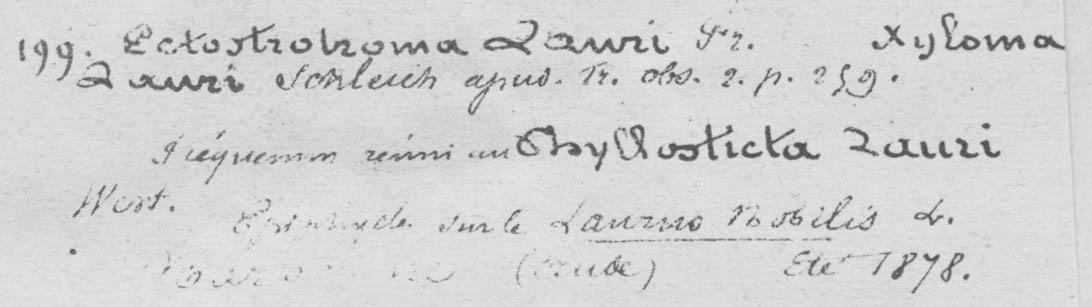 199. Ectostroma Lauri Fr. Xyloma
Lauri Schleich apud. Fr. obs. 2. p. 259.
Fréquemm réuni au Phyllosticta Lauri
West. Epiphylle sur le Laurus Nobilis L.
(Aude) Eté 1878.